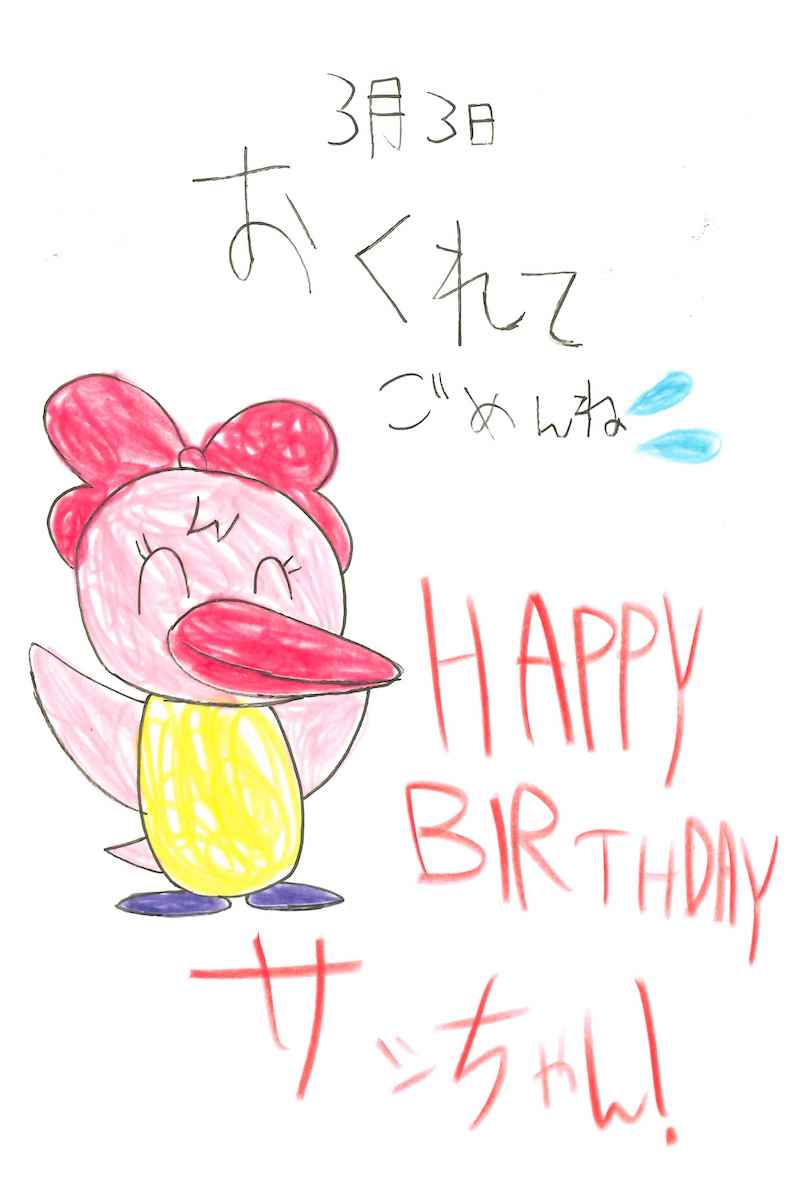 3月3日
おくれて
ごめんね
HAPPY
BIRTHDAY
サッちゃん!